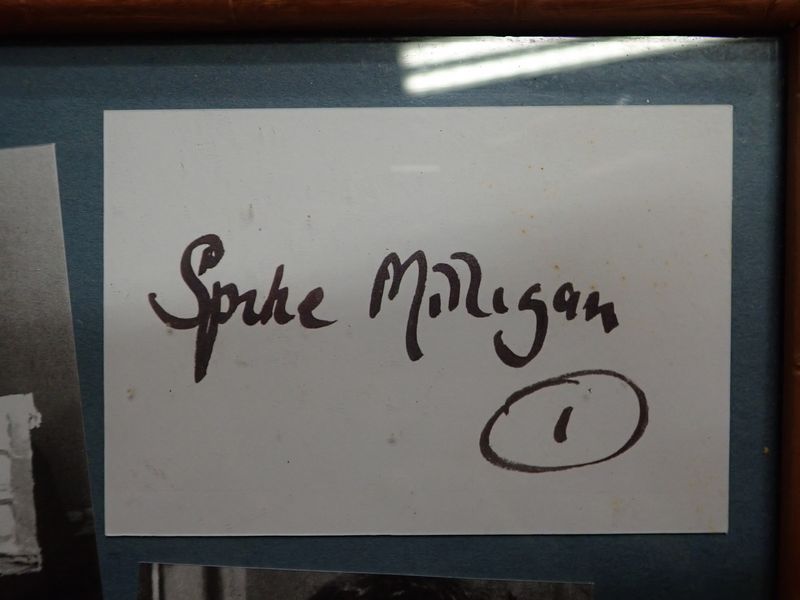 Spike Milligan
1